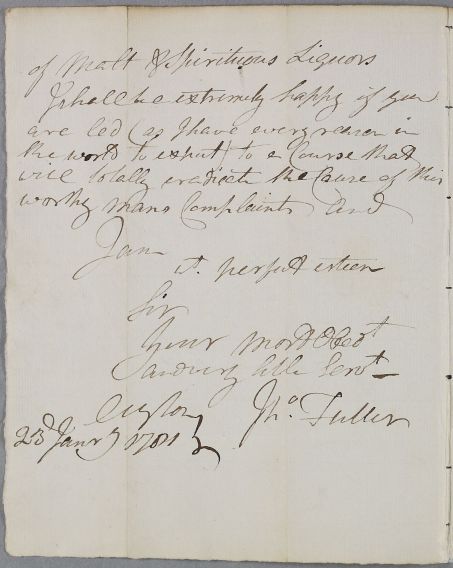 of Malt & Spirituous Liquors
I shall be extremely happy if you
are led (as I have every reason in
the world to expect) to a Course that
will totally eradicate the Cause of this
worthy mans Complaints and
I am
wt. perfect esteem
Sir
Your most Obedt
and very hble Servt
Ceyton
Thos. Fuller
23d Janry 1781